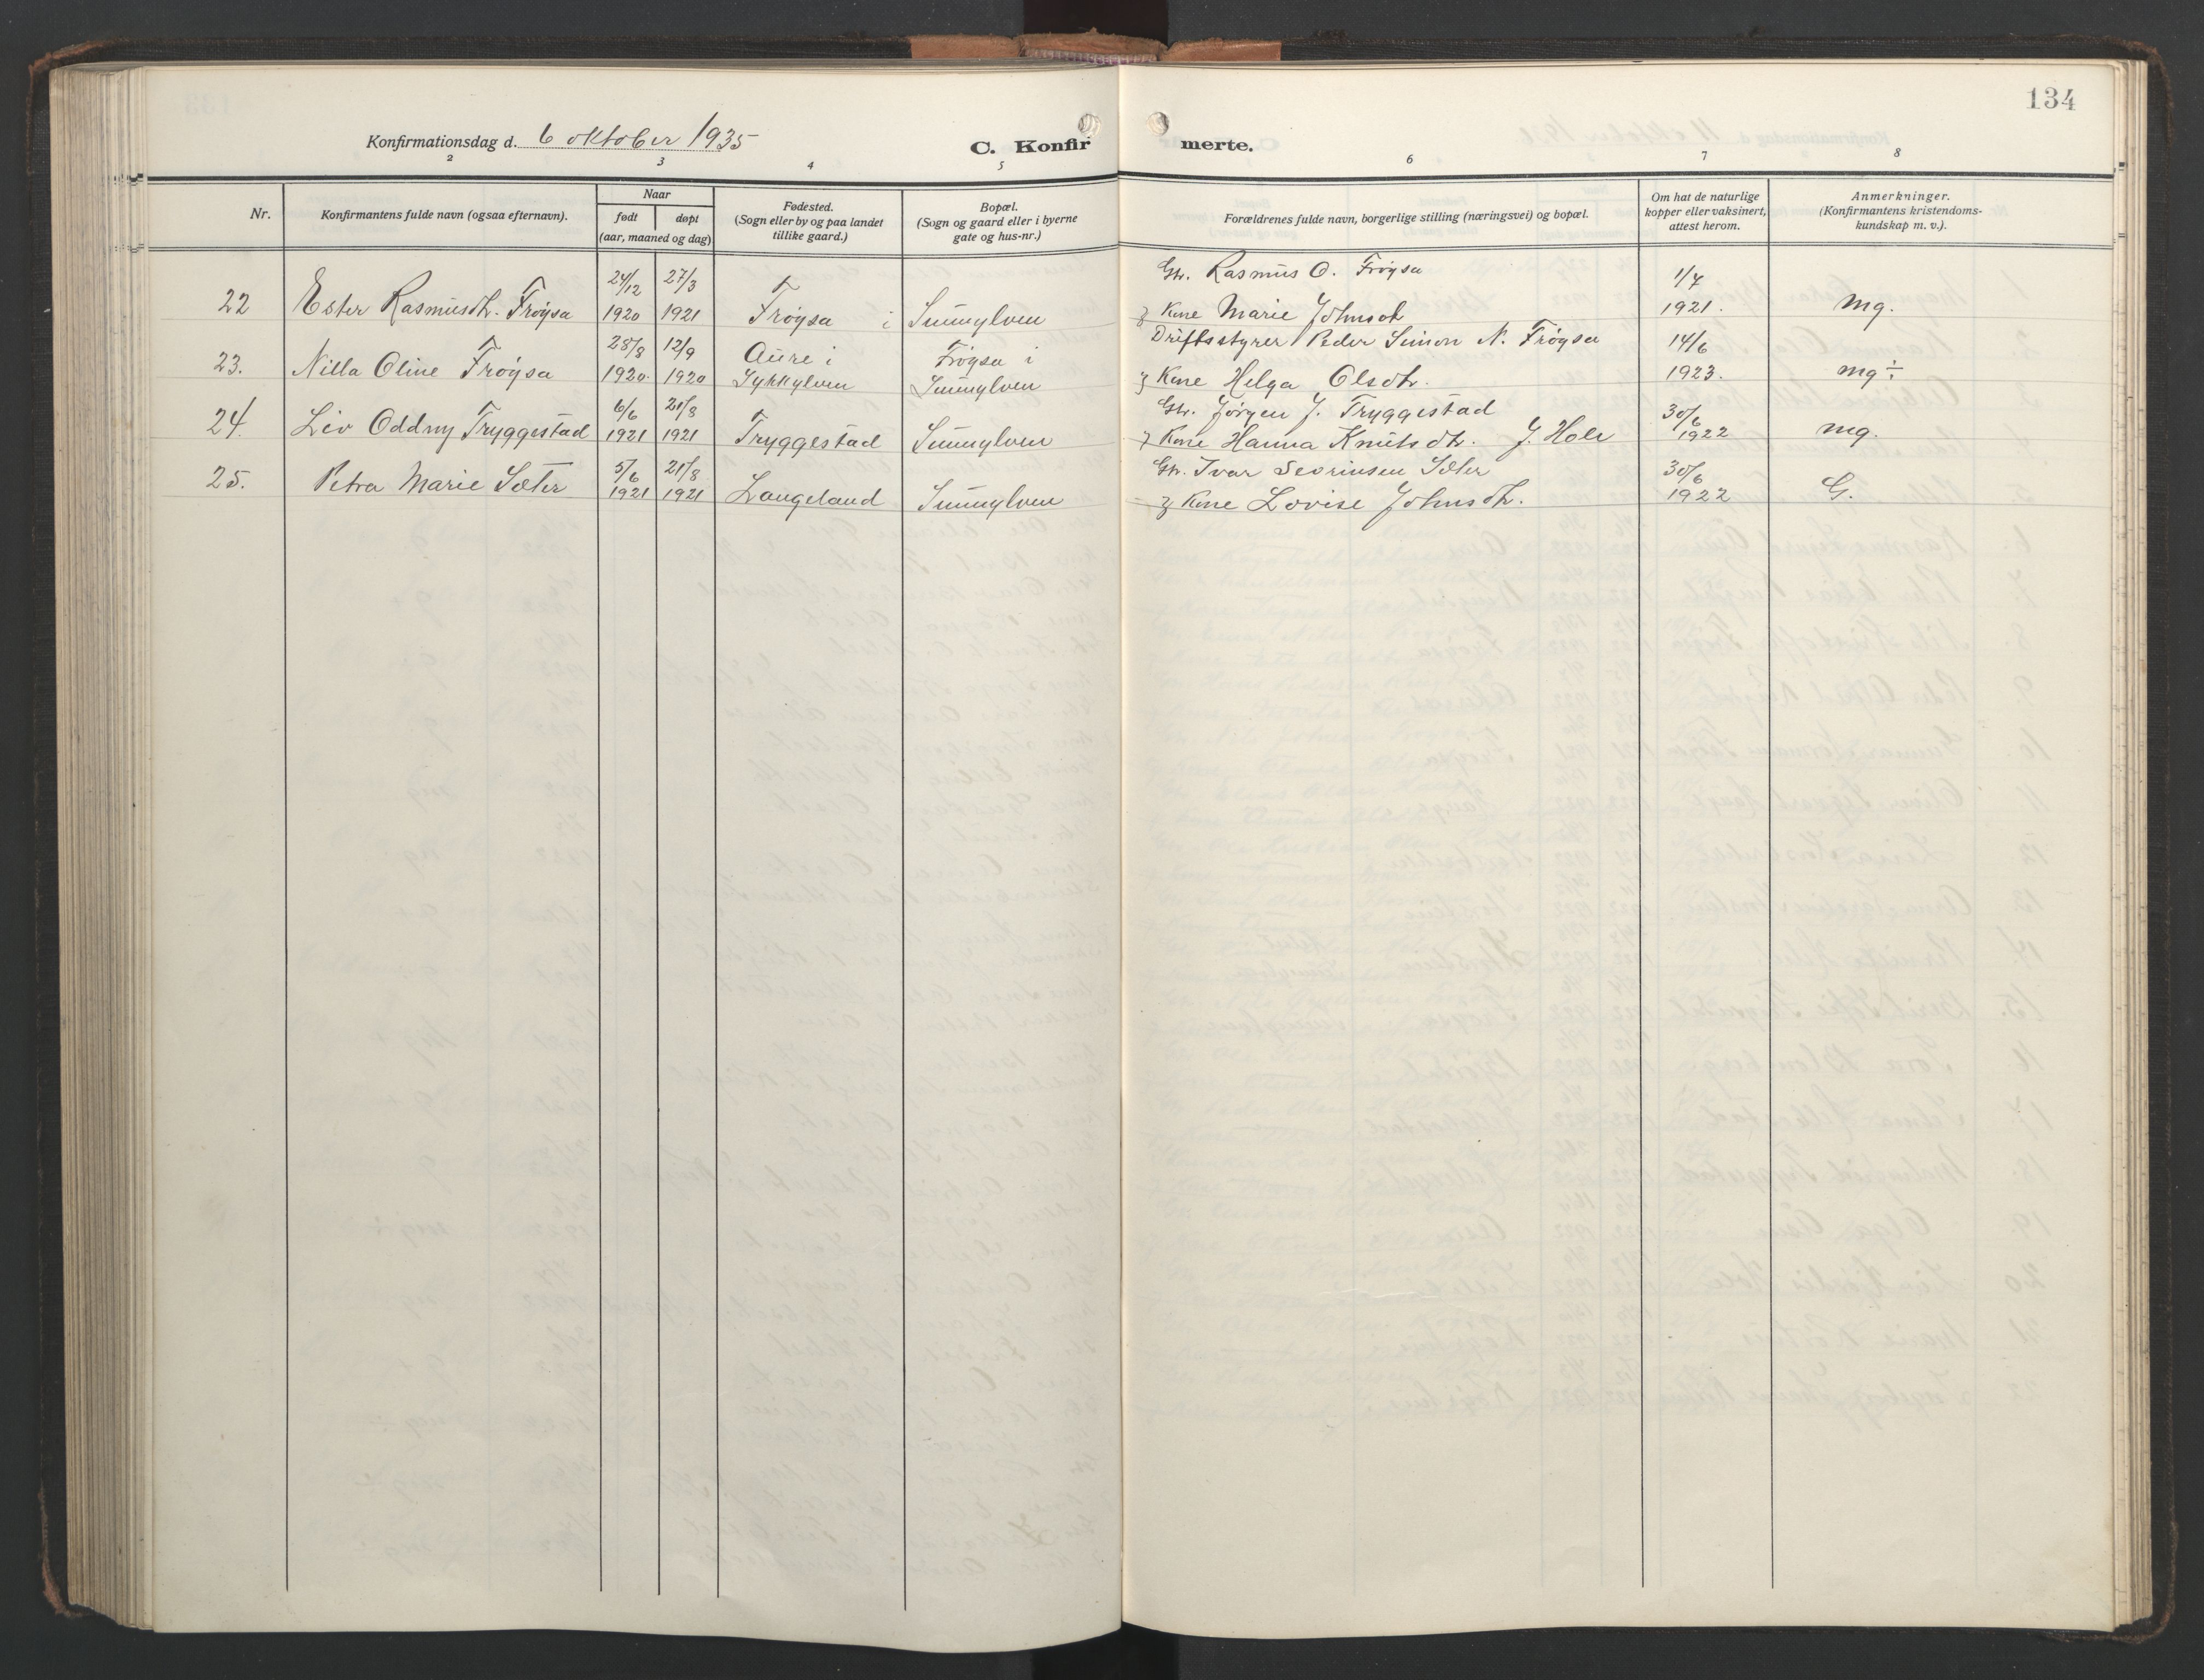 134
Konfirmationsdag d. 6 oktober 1935
C. Konfirmerte.
2 3 4 5 6 7 8
Nr.
Konfirmantens fulde navn (ogsaa efternavn).
Naar
født
døpt
(aar, maaned og dag)
Fødested.
(Sogn eller by og paa landet
tillike gaard.)
Bopæl.
(Sogn og gaard eller i byerne
gate og hus-nr.)
Forældrenes fulde navn, borgerlige stilling (næringsvei) og bopæl.
Om hat de naturlige
kopper eller vaksinert,
attest herom.
Anmerkninger.
(Konfirmantens kristendoms-
kundskap m. v.).
24/12 27/3 Gbr. Rasmus O. Frøysa 1/7
22 Ester Rasmusdtr. Frøysa 1920 1921 Frøysa i Sunnylven & Kone Marie Johnsdt 1921. mg.
28/8 12/9 Aure i Frøysa i Driftsstyrer Peder Simon N. Frøysa 14/6
23. Nilla Oline Frøysa 1920. 1920 Sykkylven Sunnylven & Kone Helga Olsdtr. 1923. mg ÷
6/6 21/8 Gbr. Jørgen J. Tryggestad 30/6
24. Liv Oddny Tryggestad 1921 1921 Tryggestad Sunnylven & Kone Hanna Knutsdtr. J. Hole 1922 mg.
5/6 21/8 Gbr. Ivar Sevrinsen Sæter 30/6
25. Petra Marie Sæter 1921 1921 Langeland Sunnylven & Kone Lovise Johnsdtr. 1922 G.